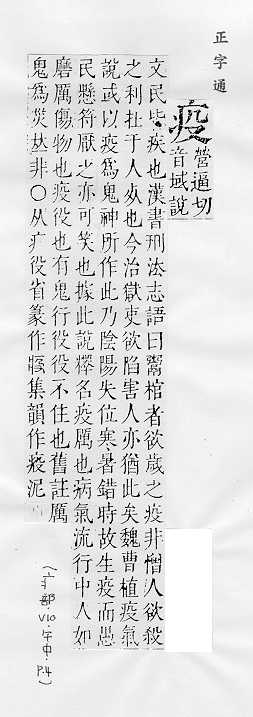 正字通
疫
營逼切
音域說
文民皆疾也漢書刑法志語曰鬻棺者欲歲之疫非憎人欲殺
之利在于人死也今治獄吏欲陷害人亦猶此矣魏曹植疫氣
說或以疫爲鬼神所作此乃陰陽失位寒暑錯時故生疫而愚
民懸符厭之亦可笑也據此說釋名疫厲也病氣流行中人如
磨厲傷物也疫役也有鬼行役役不住也舊註厲
鬼爲災𠀤非○从疒役省篆作集韻作泥
(疒部·V10·午中·P.4)